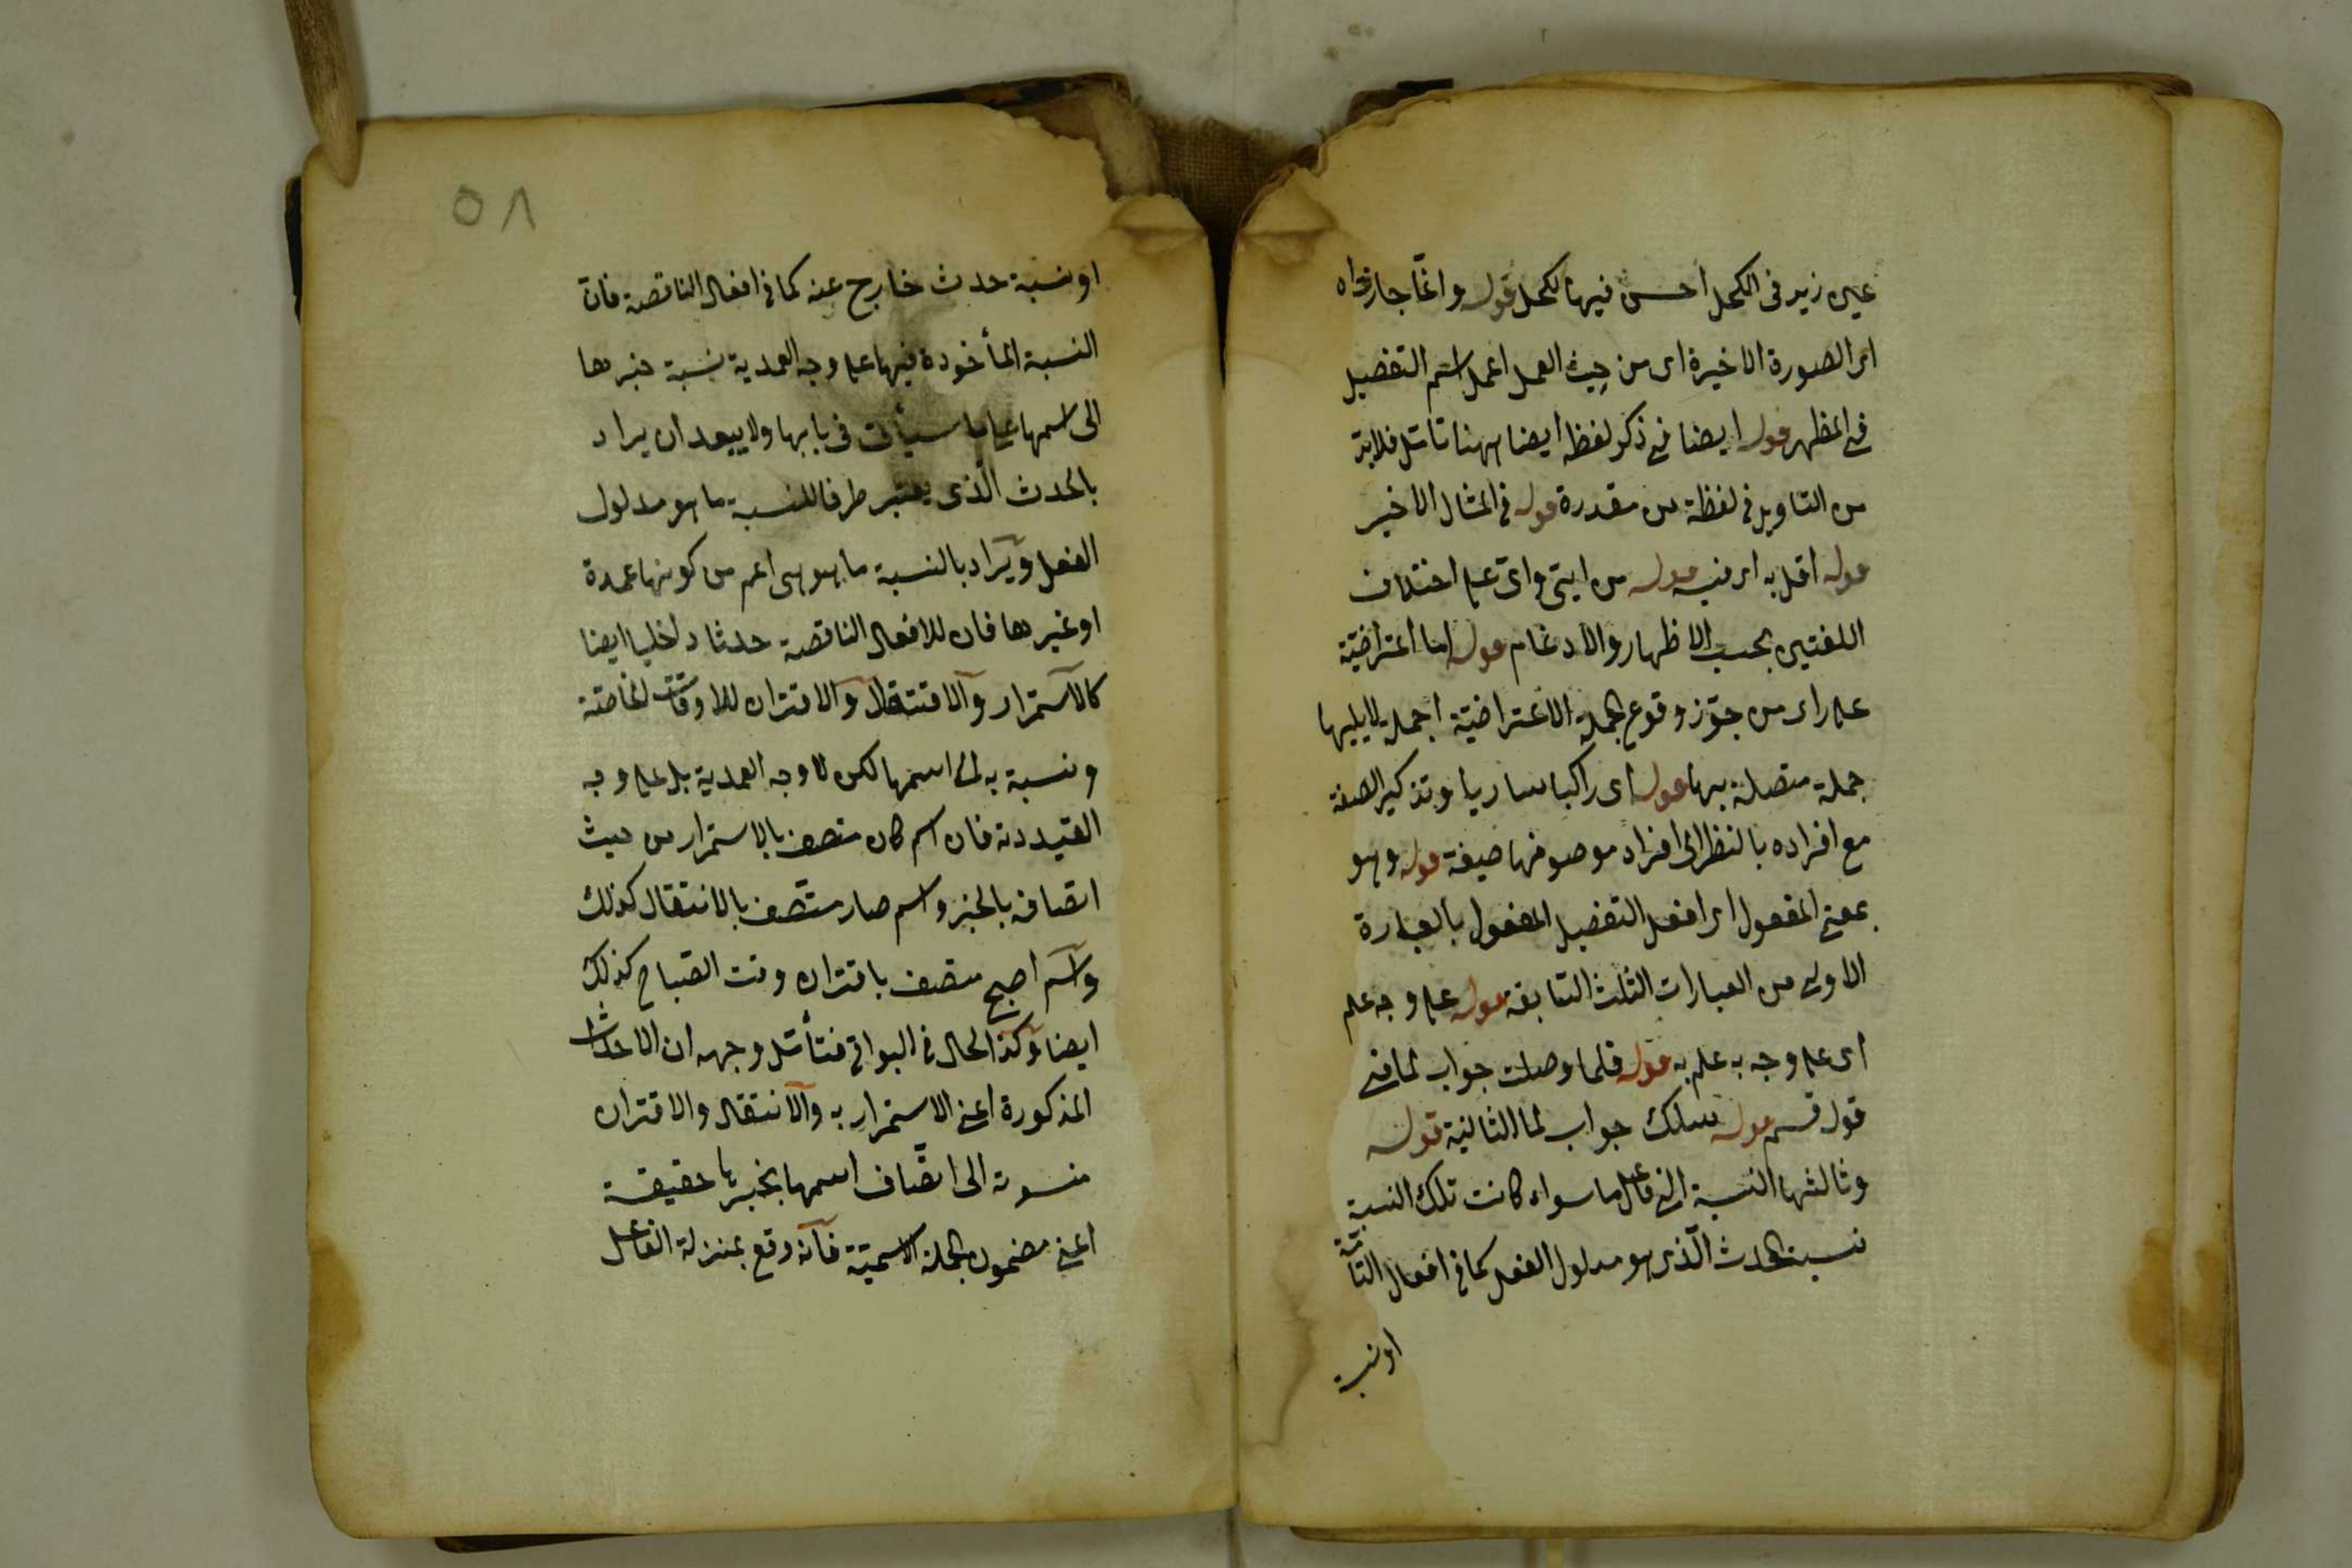 عين زيد فى الكحل احسن فيها لكحل قوله وانما جاز
اى الصورة الاخيرة اى من حيث العمل اعمل اسم التفضيل
فى المظهر قوله ايضا فى ذكر لفظ ايضا ههنا تأمل فلا بد
من التاويل فى لفظة من مقدرة قوله فى المثال الاخير
قوله اقل به اى فيه قوله من ايتى واى على اختلاف
اللغتين بحسب الاظهار والادغام قوله اما اعتراضيّة
على راى من جوّز وقوع الجملة الاعتراضيّة اجملة لا يليها
جملة متصلة بها قوله اى راكبا ساريا وتذكير الصفة
مع افراده بالنظر الى افراد موصوفها صيغة قوله وهو
بمعنى المفعول اى افعل التفضيل المفعول بالعبارة
الاولى من العبارات الثلث السابقة قوله على وجه علم
اى على وجه به علم به قوله فلما وصلت جواب لما فى
قوله قسم قوله سلك جواب لما الثانية قوله
وثالثها النسبة الى فاعل ما سواء كانت تلك النسبة
نسبة الحدث الّذى هو مدلول الفعل كما فى افعال التامّة
او نسبة
٥٨
او نسبة حدث خارج عنه كما فى افعال الناقصة فانّ
النسبة المأخوذة فيها على وجه العمدية نسبة خبرها
الى اسمها على ما سيأتى فى بابها ولا يبعد ان يراد
بالحدث الّذى يعتبر طرفا للنسبة ما هو مدلول
الفعل ويراد بالنسبة ما هو هى اعم من كونها عمدة
او غيرها فان للافعال الناقصة حدثا داخليا ايضا
كالاستمرار والانتقال والاقتران للاوقات الخاصّة
ونسبة به الى اسمها لكن لا وجه العمدية بل على وجه
القيدية فان اسم كان متصف بالاستمرار من حيث
اتصافه بالخبر واسم صار متّصف بالانتقال كذلك
واسم اصبح متصف باقتران وقت الصّباح كذلك
ايضا وكذا الحال فى البواقى فتأمّل وجهه ان الاحداث
المذكورة اعنى الاستمرار به والانتقال والاقتران
منسوبة الى اتّصاف اسمها بخبرها حقيقة
اعنى مضمون الجملة الاسميّة فانّه وقع بمنزلة الفاعل